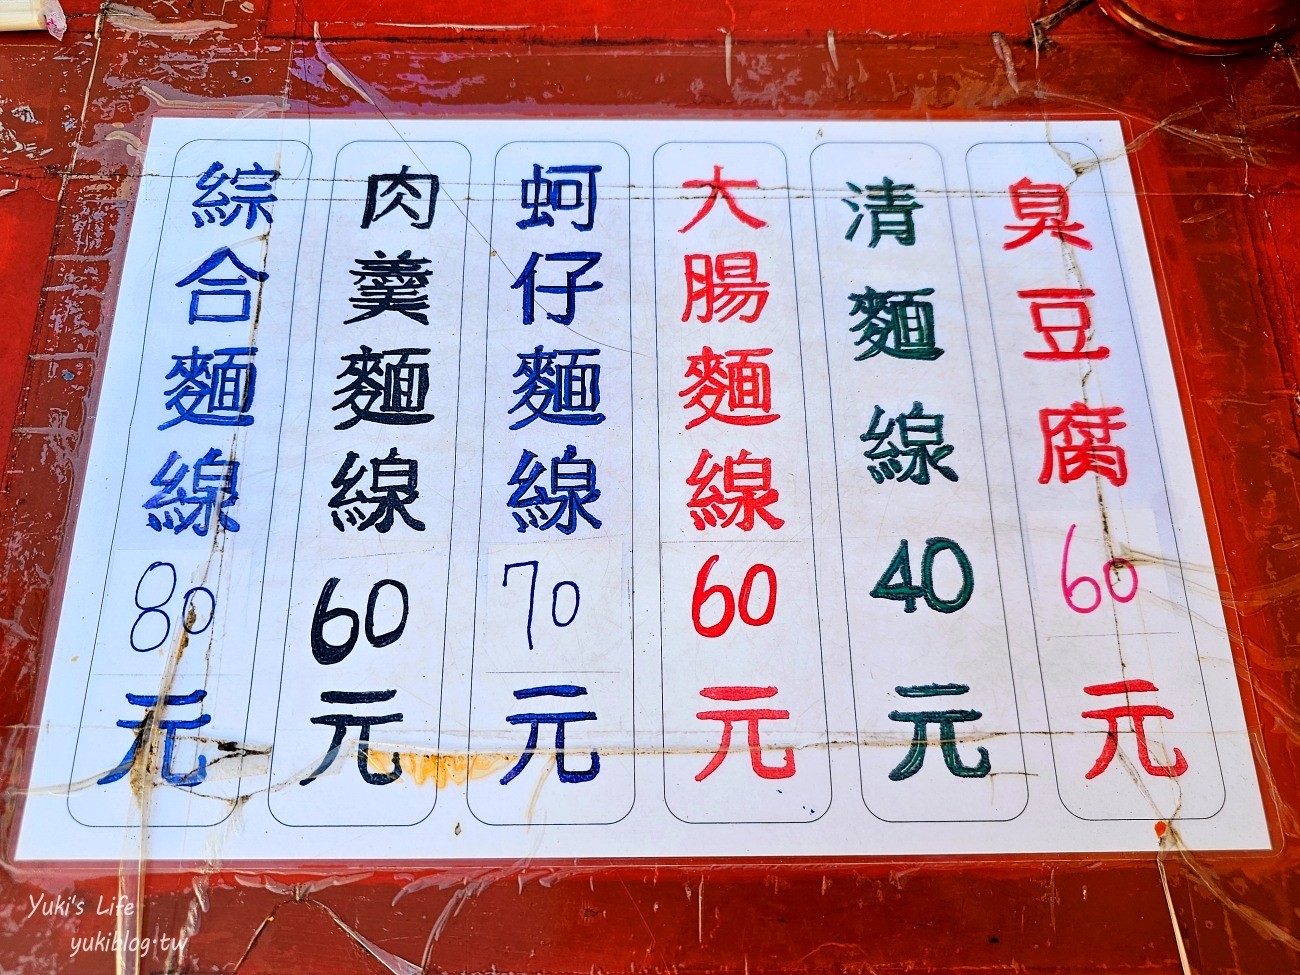 臭豆腐60元
清麵線40元
大腸麵線60元
蚵仔麵線70元
肉羹麵線60元
綜合麵線80元
Yuki's Life
yukiblog.tw